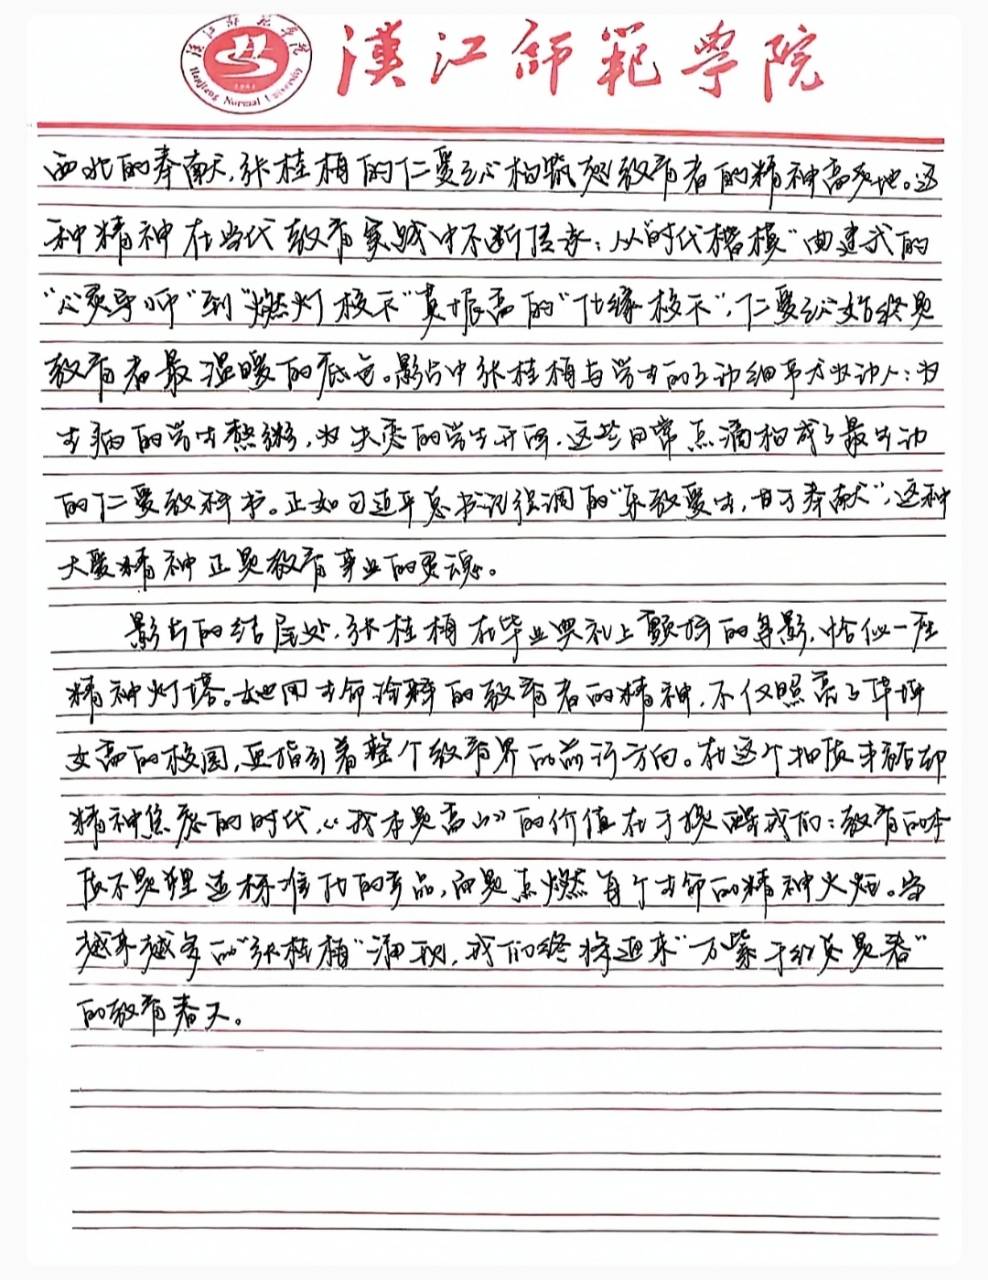 漢江師範學院
漢江師範學院
Hanjiang Normal University
西北的奉献,张桂梅的仁爱心构筑起教育者的精神高地。这
种精神在当代教育实践中不断传承:从"时代楷模"曲建武的
"心灵导师"到"燃灯校长"莫振高的"化缘校长",仁爱心始终是
教育者最温暖的底色。影片中张桂梅与学生的互动细节尤为动人:为
生病的学生熬粥,为失恋的学生开导,这些日常点滴构成了最生动
的仁爱教科书。正如习近平总书记强调的"乐教爱生,甘于奉献",这种
大爱精神正是教育事业的灵魂。
影片的结尾处,张桂梅在毕业典礼上颤抖的身影,恰似一座
精神灯塔。她用生命诠释的教育者的精神,不仅照亮了华坪
女高的校园,更指引着整个教育界的前行方向。在这个物质丰裕却
精神焦虑的时代,《我本是高山》的价值在于提醒我们:教育的本
质不是锂造标准化的产品,而是点燃每个生命的精神火炬。当
越来越多的"张桂梅"涌现,我们终将迎来"万紫千红总是春"
的教育春天。